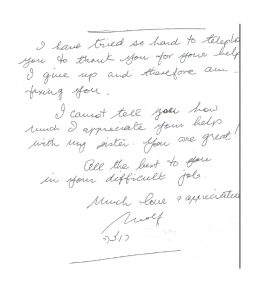 I have tried so hard to telepho
you to thank you for your help
I give up and therefore am
faxing you.
I cannot tell you how
much I appreciate your help
with my sister. You are great!
All the best to you
in your difficult job.
Much love & appreciation